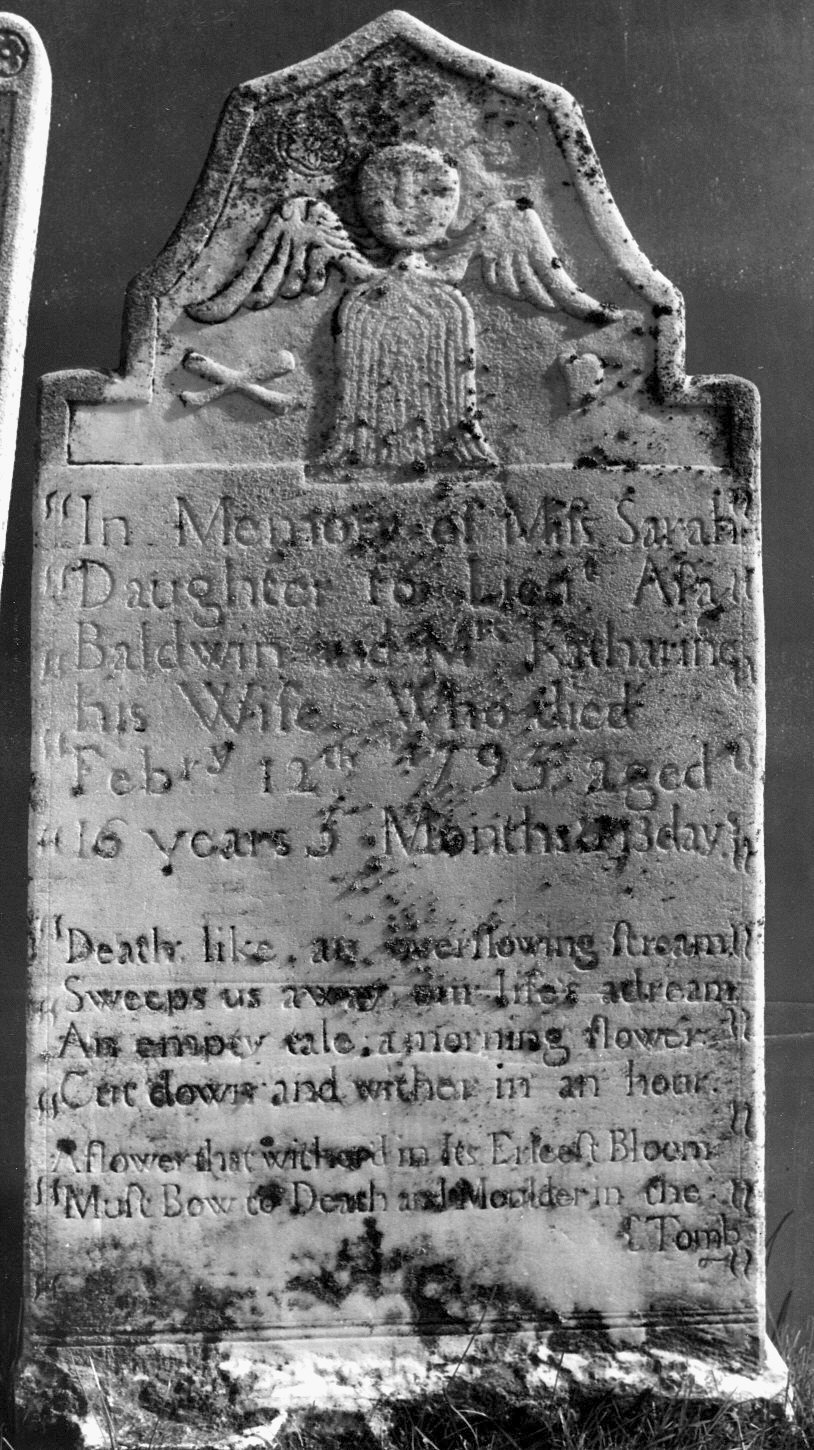 In Memory of Miſs Sarah
Daughter to Lieuᵗ Aſa
Baldwin and Mʳˢ Katharine
his Wife Who died
Febʳʸ 12ᵗʰ 1793 aged
16 years 5 Months 13 day
Death like an overflowing ſtream
Sweeps us away our life's a dream
An empty tale, a morning flower
Cut down and wither in an hour.
A flower that witherd in Its Erleeſt Bloom
Muſt Bow to Death and Moulder in the
[Tomb